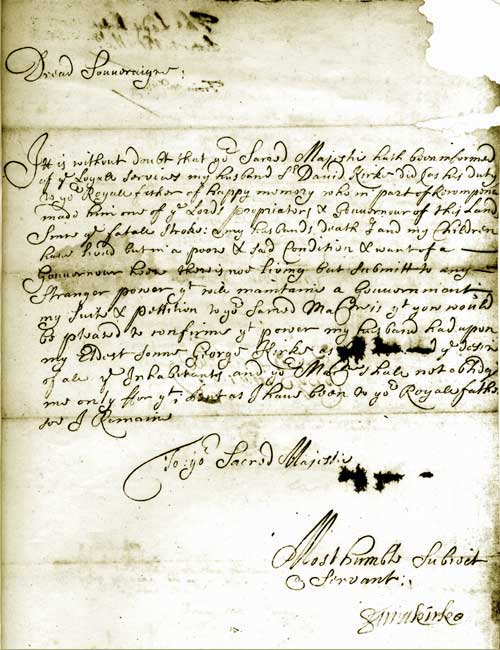 Dread Souveraigne;
It is without doubt that yor Sacred Majestie hath been informed
of ye Loyall services my husband Sr David Kirke did (as his duty
to yor Royale father of happy memory who in part of Recompence
made him one of ye Lords Propriators & Gouvernour of this Land
Since ye fatale stroke: my husbands death I and my Children
have lived but in a poore & sad Condition & want of a
Gouvernour here there is noe living but submitt to any
Stranger power yt will maintaine a Gouvernment
my suite & Petition to yor Sacred Matie is yt you would
be pleased to confirme yt power my husband had upon
my Eldest Sonne George Kirke as ye desire
of all ye Inhabitants and yor Matie shale not oblidg
me only for yt. but as I have been to yor Royale fathe
soe I Remaine
To: yor Sacred Majestie
Most humble Subieit
& Servant:
Kirke